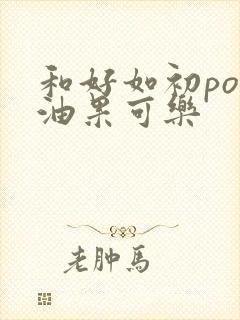 和好如初po
油果可樂
老肿馬